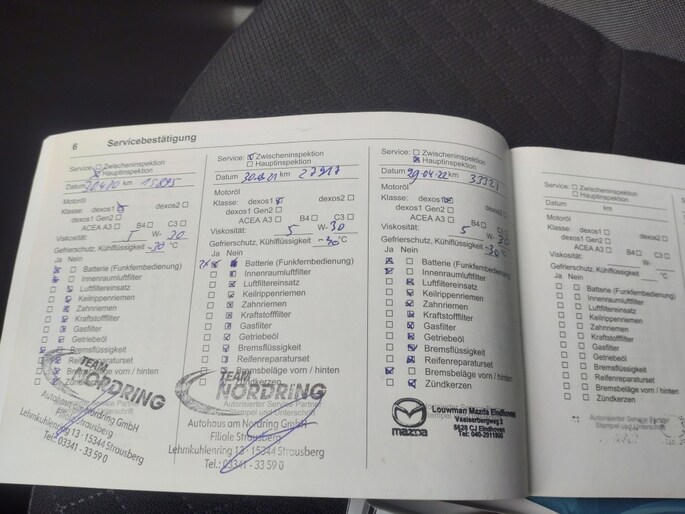 6 Servicebestätigung
Service: Zwischeninspektion
Hauptinspektion
Datum km 15895
Motoröl
Klasse: dexos1 dexos2
dexos1 Gen2
ACEA A3 B4 C3
Viskosität: 5 W- 30
Gefrierschutz, Kühlflüssigkeit -30 °C
Ja Nein
Batterie (Funkfernbedienung)
Innenraumluftfilter
Luftfiltereinsatz
Keilrippenriemen
Zahnriemen
Kraftstofffilter
Gasfilter
Getriebeöl
Bremsflüssigkeit
Reifenreparaturset
Bremsbeläge vorn / hinten
Zündkerzen
TEAM
NORDRING
Autohaus am Nordring GmbH
Filiale Strausberg
Lehmkuhlenring 13 · 15344 Strausberg
Tel.: 03341 - 33 59 0
Service: Zwischeninspektion
Hauptinspektion
Datum km
Motoröl
Klasse: dexos1 dexos2
dexos1 Gen2
ACEA A3 B4 C3
Viskosität: 5 W- 30
Gefrierschutz, Kühlflüssigkeit -30 °C
Ja Nein
Batterie (Funkfernbedienung)
Innenraumluftfilter
Luftfiltereinsatz
Keilrippenriemen
Zahnriemen
Kraftstofffilter
Gasfilter
Getriebeöl
Bremsflüssigkeit
Reifenreparaturset
Bremsbeläge vorn / hinten
Zündkerzen
TEAM
NORDRING
Autorisierter Service Partner
Stempel und Unterschrift
Autohaus am Nordring GmbH
Filiale Strausberg
Lehmkuhlenring 13 · 15344 Strausberg
Tel.: 03341 - 33 59 0
Service: Zwischeninspektion
Hauptinspektion
Datum 29-04-22 km 33321
Motoröl
Klasse: dexos1 dexos2
dexos1 Gen2
ACEA A3 B4 C3
Viskosität: 5 W- 30
Gefrierschutz, Kühlflüssigkeit -30 °C
Ja Nein
Batterie (Funkfernbedienung)
Innenraumluftfilter
Luftfiltereinsatz
Keilrippenriemen
Zahnriemen
Kraftstofffilter
Gasfilter
Getriebeöl
Bremsflüssigkeit
Reifenreparaturset
Bremsbeläge vorn / hinten
Zündkerzen
mazda
Louwman Mazda Eindhoven
5628 CJ Eindhoven
Tel: 040-2911900
Service: Zwischeninspektion
Hauptinspektion
Datum km
Motoröl
Klasse: dexos1 dexos2
dexos1 Gen2
ACEA A3 B4 C3
Viskosität: W-
Gefrierschutz, Kühlflüssigkeit °C
Ja Nein
Batterie (Funkfernbedienung)
Innenraumluftfilter
Luftfiltereinsatz
Keilrippenriemen
Zahnriemen
Kraftstofffilter
Gasfilter
Getriebeöl
Bremsflüssigkeit
Reifenreparaturset
Bremsbeläge vorn / hinten
Zündkerzen
Autorisierter Service Partner
Stempel und Unterschrift